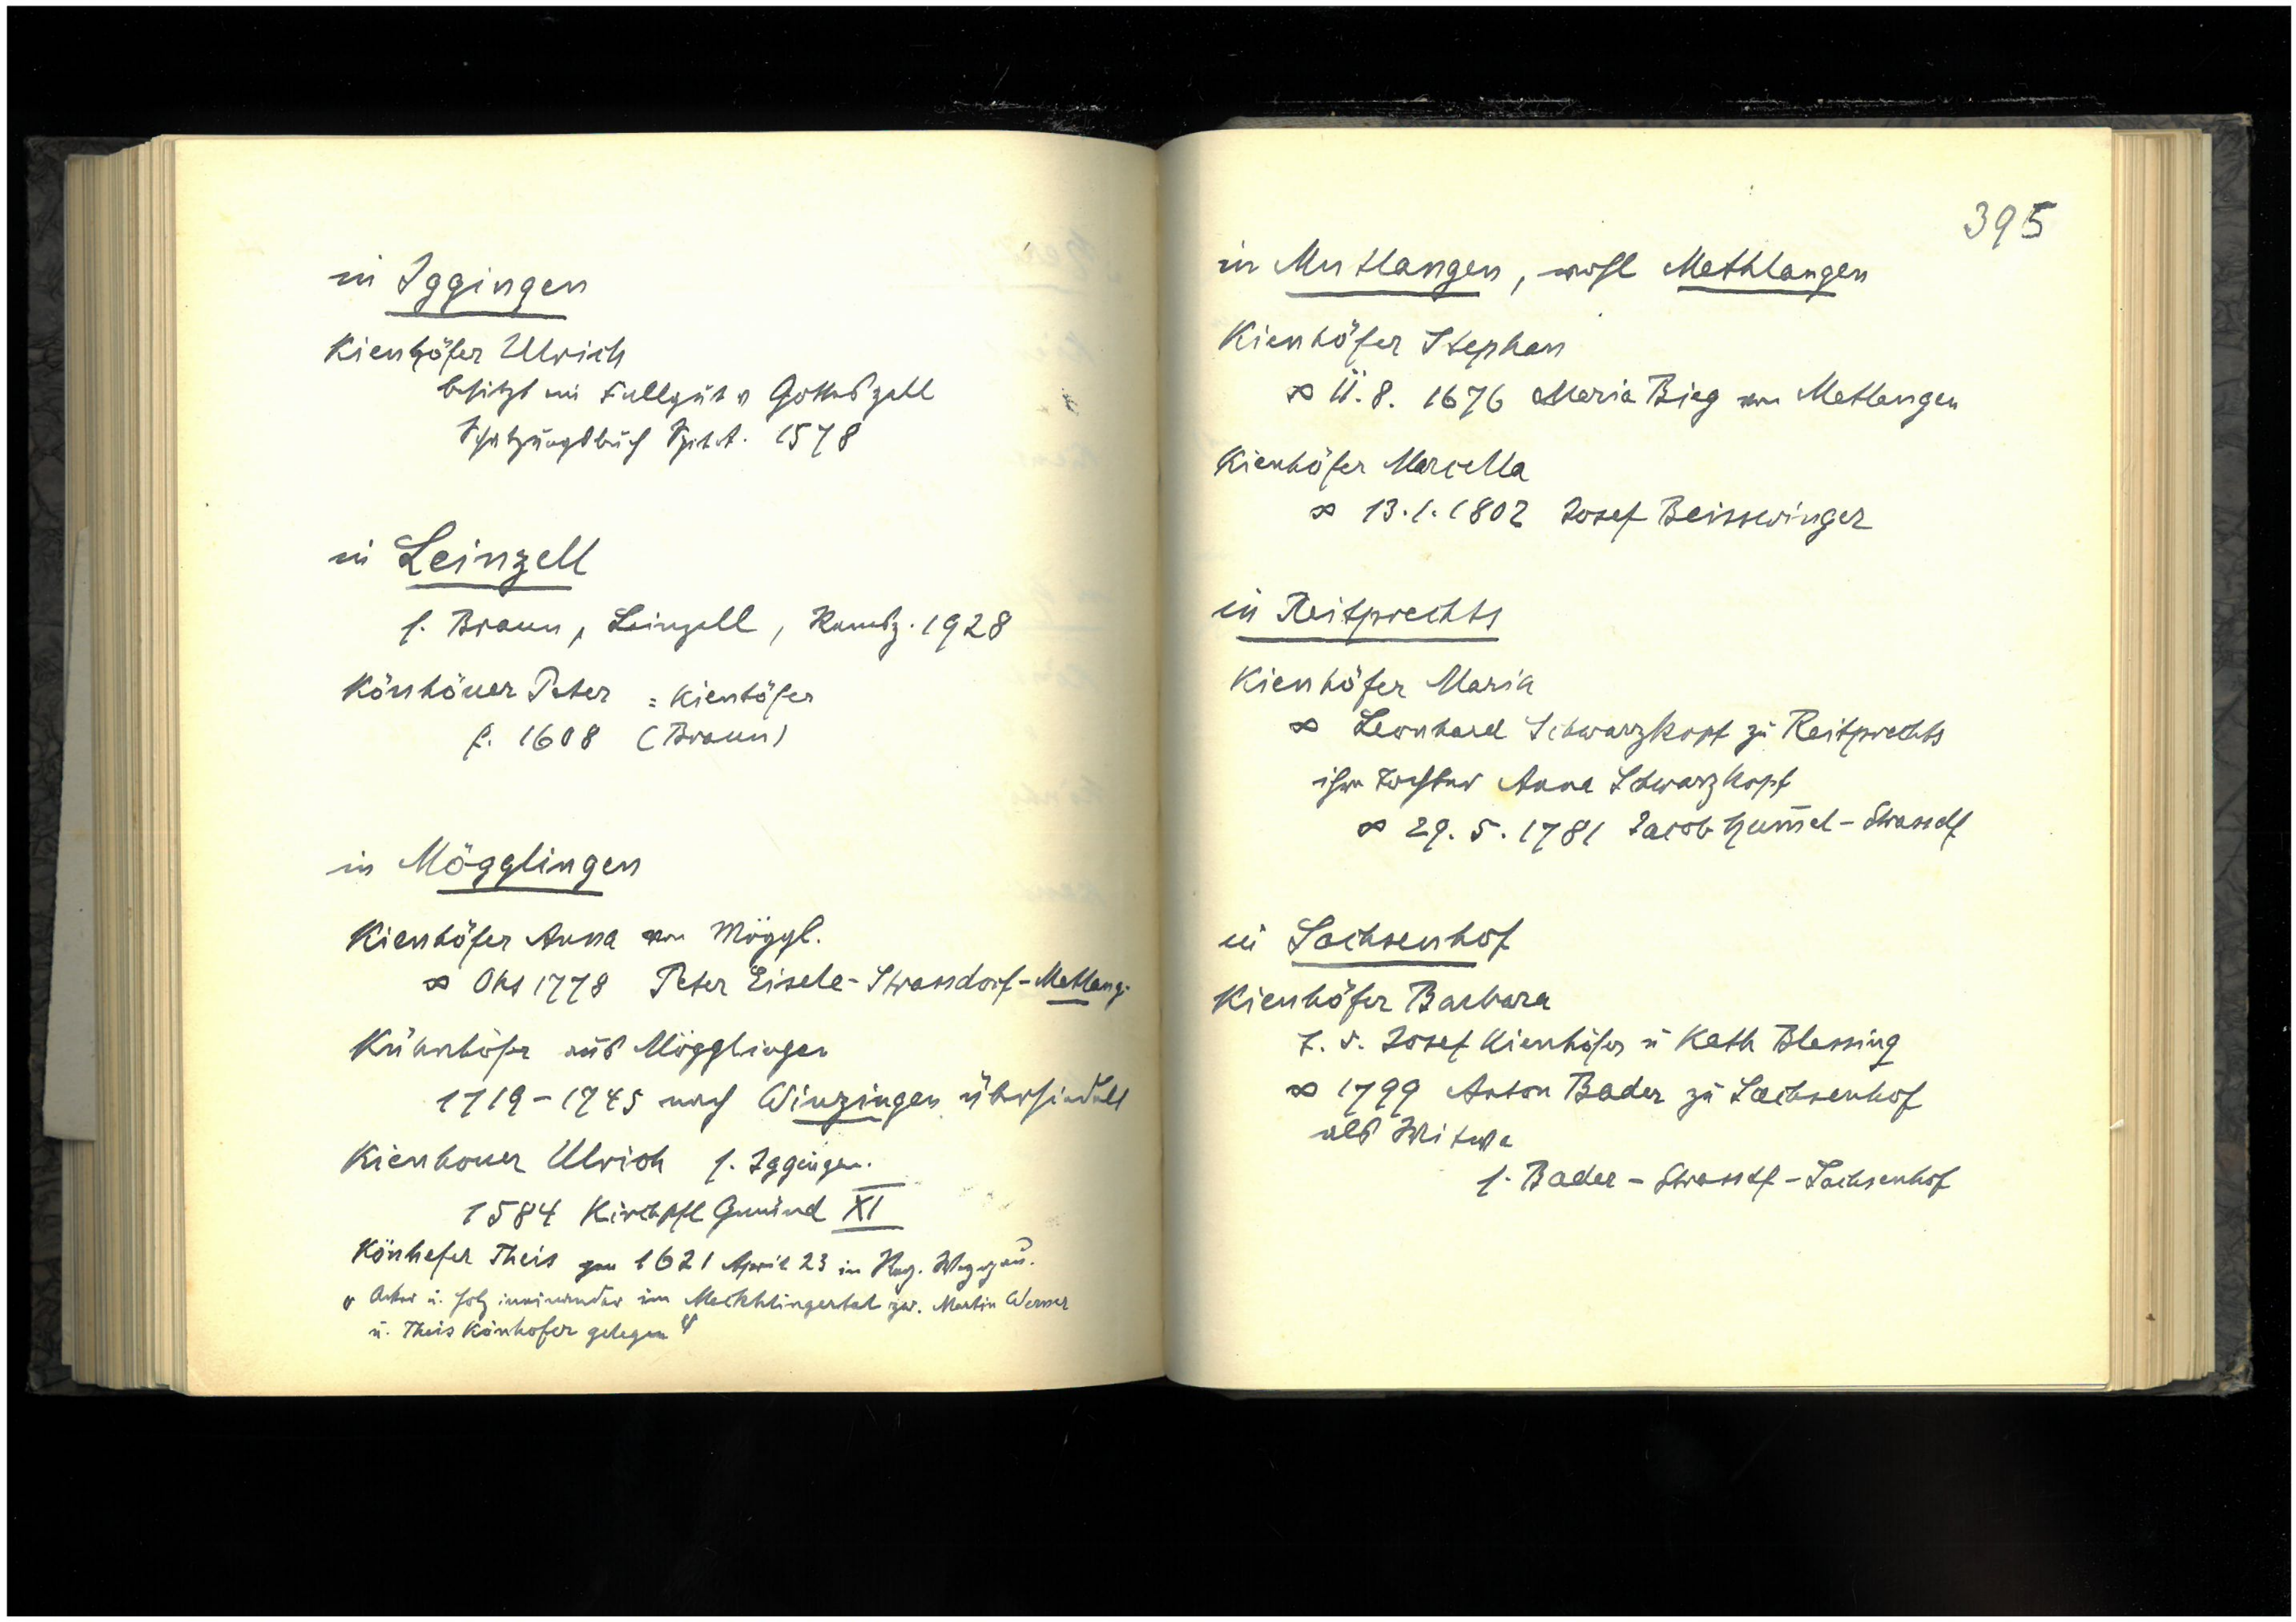 in Iggingen
Kienhöfer Ulrich
besitzt ein Fallgut v Gotteszell
Schatzungsbuch Spit.A. 1578
in Leinzell
s. Braun, Leinzell, Remsz. 1928
Könhöuer Peter = Kienhöfer
f. 1608 (Braun)
in Mögglingen
Kienhöfer Anna von Möggl.
∞ Okt 1778 Peter Eisele-Strassdorf-Metlang.
Kühnhöfer aus Mögglingen
1719-1745 nach Winzingen übersiedelt
Kienhouer Ulrich s. Iggingen.
1584 Kirchpfl Gmünd XI
Könhefer Theis gen 1621 April 23 in Reg.
" Acker u. Holz ineinander im Mechhlingertal zw. Martin Werner
u. Theis Könhofer gelegen "
395
in Mutlangen, wohl Methlangen
Kienhöfer Stephan
∞ 11.8. 1676 Maria Bieg von Metlangen
Kienhöfer Marcella
∞ 13.1.1802 Josef Beisswinger
in Reitprechts
Kienhöfer Maria
∞ Leonhard Schwarzkopf zu Reitprechts
ihre Tochter Anna Schwarzkopf
∞ 29.5.1781 Jacob Hum̅el-Strassdf
in Sachsenhof
Kienhöfer Barbara
T. d. Josef Kienhöfer u Kath Blessing
∞ 1799 Anton Bader zu Sachsenhof
als Witwe
s. Bader - Strassdf - Sachsenhof